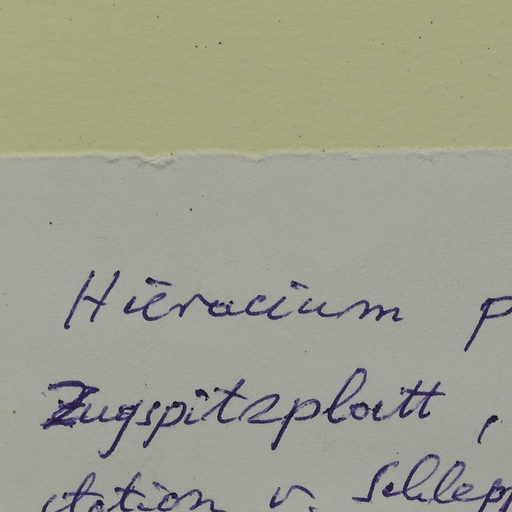 Hieracium p
Zugspitzplatt,
station v. Schlepp